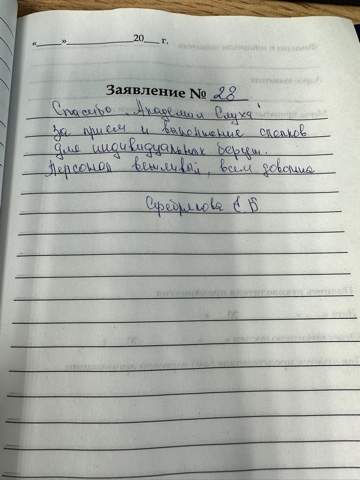 «____»____________20__ г.
Заявление № 28
Спасибо "Академия Слуха"
за прием и выполнение слепков
для индивидуальных беруш.
Персонал вежливый, всем довольна
Серебрякова Е В